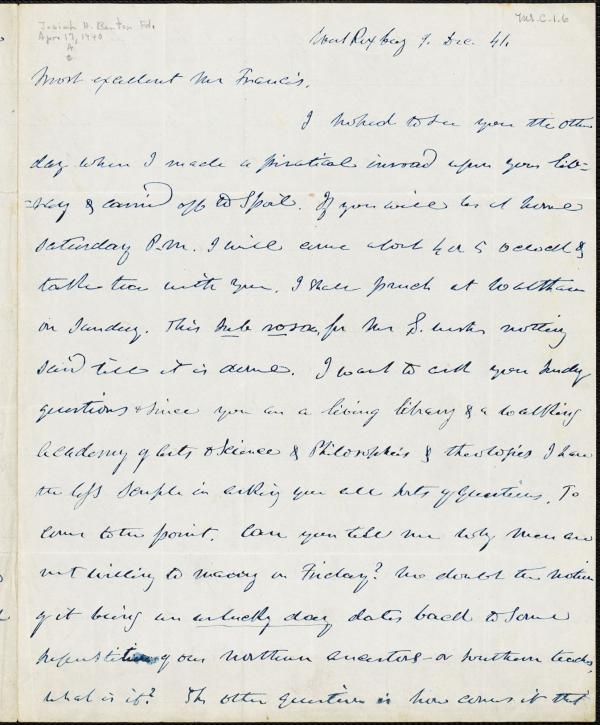 Josiah H. Benton Fd.
Apr. 17, 1940
Ms. C. 1. 6
West Roxbury 9. Dec. 41.
Most excellent Mr Francis.
I hoped to see you the other
day when I made a piratical inroad upon your lib-
-rary & carried off the Spoil. If you will be at home
Saturday P.M. I will come about 4 or 5 oclock &
take tea with you. I shall preach at Waltham
on Sunday. This sub rosa, for Mr wishes nothing
said till it is done. I want to ask you sundry
questions & since you are a living library & a walking
academy of arts & science & Philosophies & theologies I have
the less scruple in asking you all sorts of Questions. To
come to the point. Can you tell me why men are
not willing to marry on Friday? No doubt the notion
of it being an unlucky day dates back to some
superstition of our northern ancestors - or southern
what is it? The other question is how comes it that